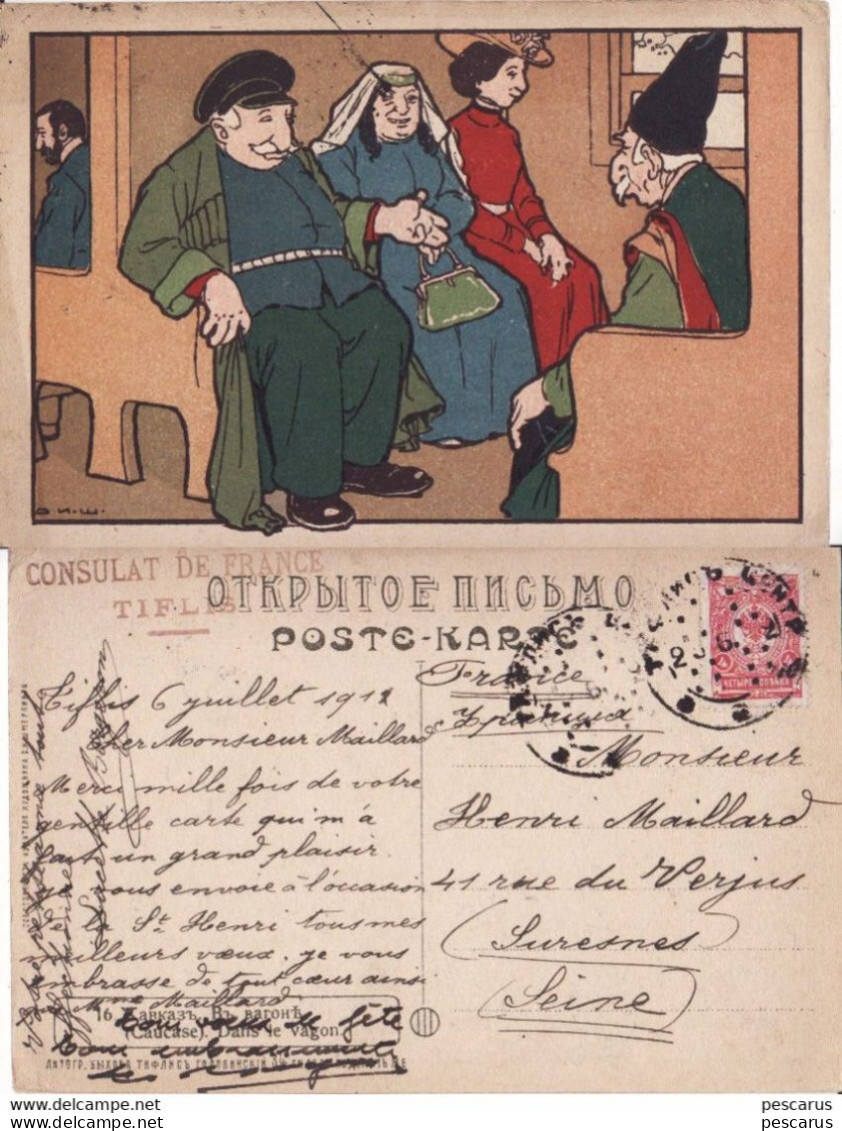 О И. Ш.
CONSULAT DE FRANCE
TIFLIS
ОТКРЫТОЕ ПИСЬМО
POSTE-КАРТЕ
ТИФЛИСЪ ЦЕНТР
ЧЕТЫРЕ КОПѢЙКИ
Tiflis 6 juillet 1911
Cher Monsieur Maillard
Merci mille fois de votre
gentille carte qui m'a
fait un grand plaisir
je vous envoie à l'occasion
de la St Henri tous mes
meilleurs vœux. je vous
embrasse de tout cœur ainsi
Mme Maillard
France
Франция
Monsieur
Henri Maillard
41 rue du Verjus
(Suresnes)
(Seine)
16. Кавказъ. Въ вагонѣ
(Caucase). Dans le vagon.
fête
ЛИТОГР. БЫХОВА ТИФЛИСЪ ГОЛОВИНСКІЙ
pescarus
pescarus